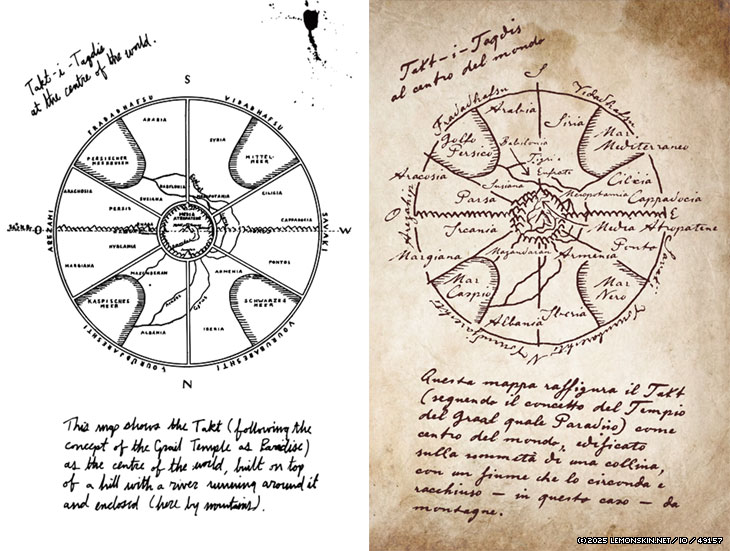 Takt-i-Taqdis
at the centre of the world.
S
FRADADHAFSU
VIDABHAFSU
ARABIA
SYRIA
PERSISCHER
MEERBUSEN
MITTEL-
MEER
ARACHOSIA
BABYLONIA
MESOPOTAMIA
CILICIA
SUSIANA
PERSIS
CAPPADOCIA
AREZAHI
MEDIA
ATROPATENE
SAVAHI
W
HYRLANIA
MARGIANA
MAZENDERAN
ARMENIA
PONTOS
KASPISCHES
MEER
SCHWARZES
MEER
ALBANIA
IBERIA
VOURUBARESHTI
N
This map shows the Takt (following the
concept of the Grail Temple as Paradise)
as the centre of the world, built on top
of a hill with a river running around it
and enclosed (here by mountains).
Takt-i-Taqdis
al centro del mondo
S
Fradadhafsu
Vidadhafsu
Arabia
Siria
Golfo
Persico
Babilonia
Mar
Mediterraneo
Tigri
Eufrate
Aracosia
Susiana
Mesopotamia
Cilicia
Cappadocia
Parsa
O
E
Arezahi
Ircania
Media Atropatene
Margiana
Mazandaran
Armenia
Ponto
Mar
Caspio
Mar
Nero
Albania
Iberia
N
Questa mappa raffigura il Takt
(seguendo il concetto del Tempio
del Graal quale Paradiso) come
centro del mondo, edificato
sulla sommità di una collina,
con un fiume che lo circonda e
racchiuso – in questo caso – da
montagne.
(c)2025 LEMONSKIN.NET / IO / 49157